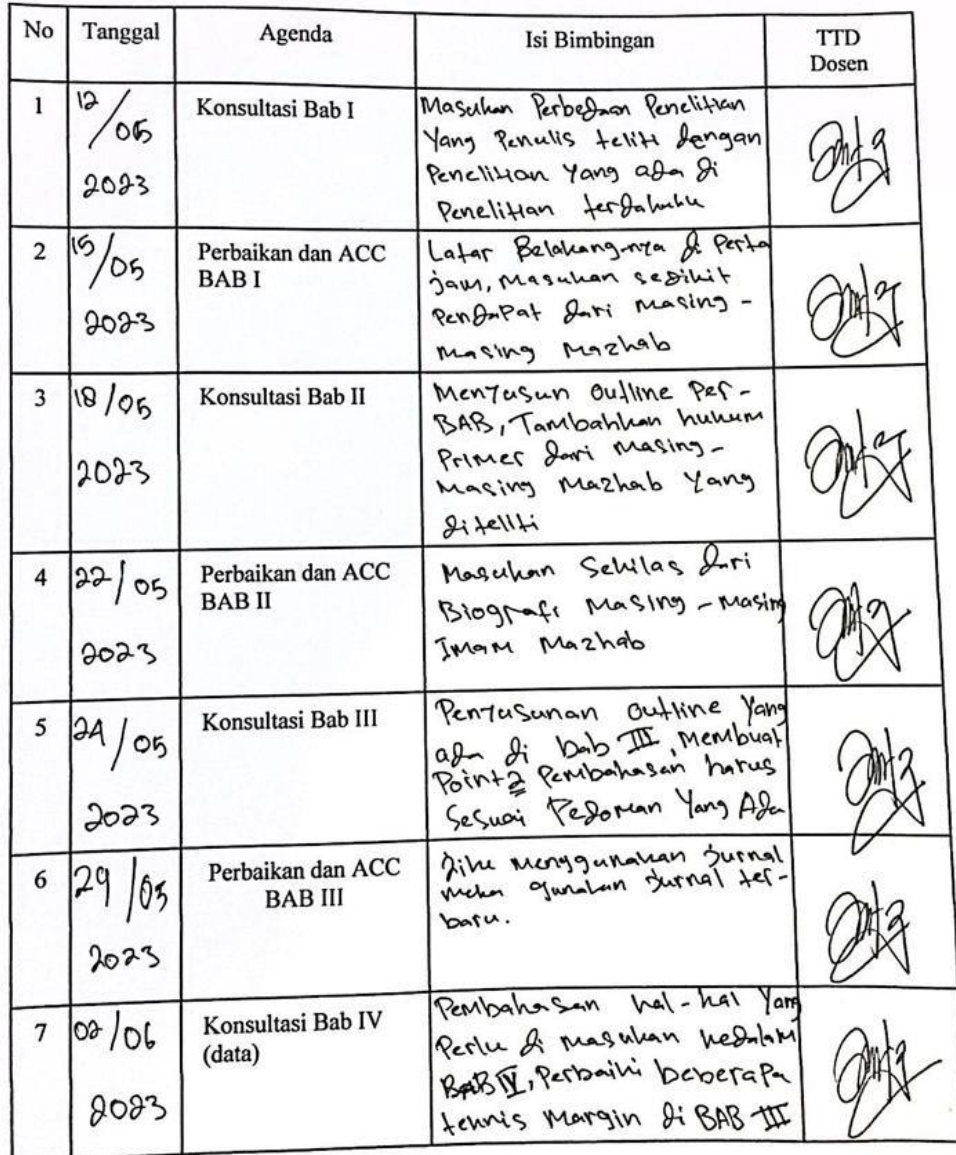 No Tanggal Agenda Isi Bimbingan TTD
Dosen
1 12/05 Konsultasi Bab I Masukan Perbedaan Penelitian
Yang Penulis teliti dengan
2023 Penelitian Yang ada di
Penelitian terdahulu
2 15/05 Perbaikan dan ACC Latar Belakang-nya di Perta
BAB I jam, Masukan sedikit
2023 Pendapat dari masing-
masing Mazhab
3 18/05 Konsultasi Bab II Menyusun Outline Per-
BAB, Tambahkan hukum
2023 Primer dari masing-
Masing Mazhab Yang
diteliti
4 22/05 Perbaikan dan ACC Masukan Sekilas dari
BAB II Biografi Masing-masing
2023 Imam Mazhab
5 24/05 Konsultasi Bab III Penyusunan outline Yang
ada di bab III, Membuat
Point2 Pembahasan harus
2023 Sesuai Pedoman Yang Ada
6 29/05 Perbaikan dan ACC Jika menggunakan Jurnal
BAB III maka gunakan Jurnal ter-
2023 baru.
7 02/06 Konsultasi Bab IV Pembahasan hal-hal Yang
(data) Perlu di masukan kedalam
BAB IV, Perbaiki beberapa
2023 teknis Margin di BAB III